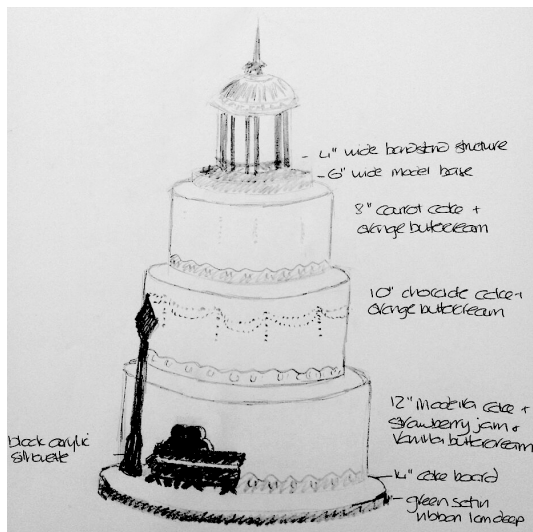 4" wide bandstand structure
6" wide model base
8" carrot cake +
orange buttercream
10" chocolate cake +
orange buttercream
12" madeira cake +
strawberry jam +
vanilla buttercream
black acrylic
silhouette
14" cake board
green satin
ribbon 1cm deep